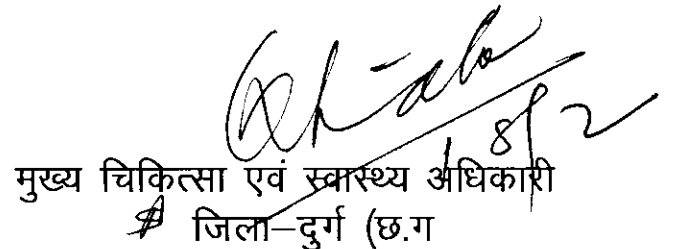 18/2
मुख्य चिकित्सा एवं स्वास्थ्य अधिकारी
जिला–दुर्ग (छ.ग